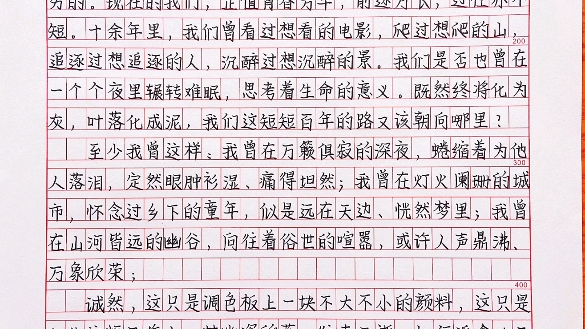 穷的。现在的我们，正值青春当年，前途
短。十余年里，我们曾看过想看的电影，爬过想爬的山，
200
追逐过想追逐的人，沉醉过想沉醉的景。我们是否也曾在
一个个夜里辗转难眠，思考着生命的意义。既然终将化为
灰，叶落化成泥，我们这短短百年的路又该朝向哪里？
至少我曾这样、我曾在万籁俱寂的深夜，蜷缩着为他
300
人落泪，定然眼肿衫湿、痛得坦然；我曾在灯火阑珊的城
市，怀念过乡下的童年，似是远在天边、恍然梦里；我曾
在山河皆远的幽谷，向往着俗世的喧嚣，或许人声鼎沸、
万象欣荣；
400
诚然，这只是调色板上一块不大不小的颜料，这只是